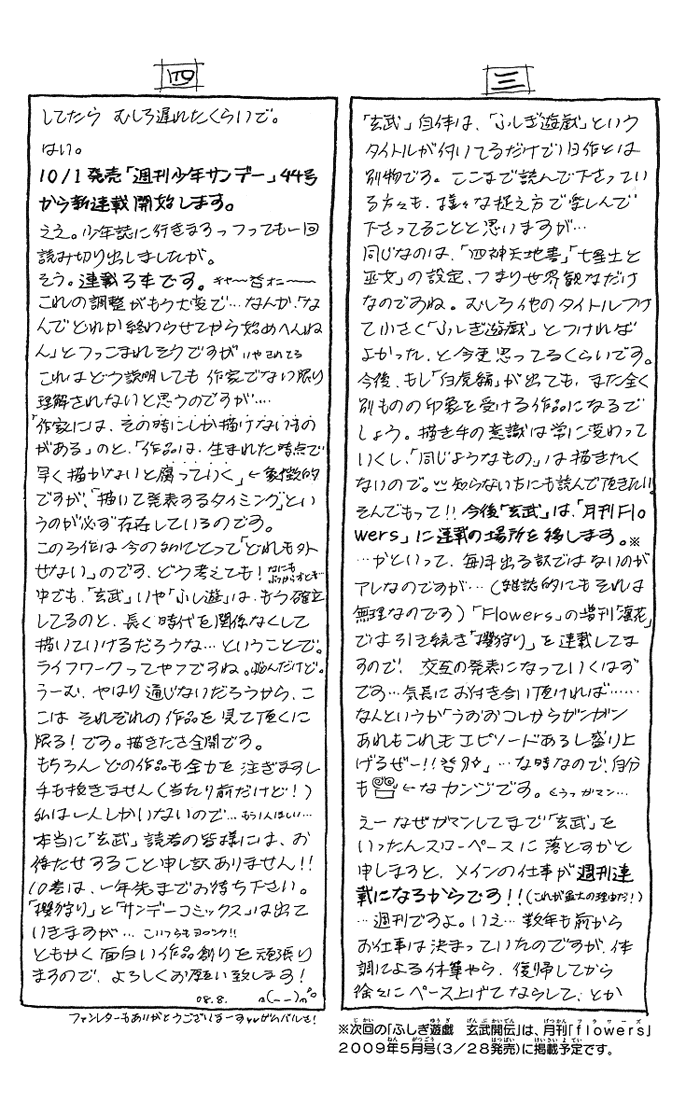 三
「玄武」自体は、「ふしぎ遊戯」という
タイトルが付いてるだけで旧作とは
別物です。ここまで読んで下さってい
る方々も、様々な捉え方で楽しんで
下さってることと思いますが…
同じなのは、「四神天地書」「七星士と
巫女」の設定、つまり世界観なだけ
なのですね。むしろ他のタイトルつけ
て小さく「ふしぎ遊戯」とつければ
よかった、と今更思ってるくらいです。
今後、もし「白虎編」が出ても、また全く
別ものの印象を受ける作品になるで
しょう。描き手の意識は常に変わって
いくし、「同じようなもの」は描きたく
ないので。知らない方にも読んで頂きたい!!
そんでもって!!今後「玄武」は、「月刊Flo
wers」に連載の場所を移します。※
…かといって、毎月出る訳ではないのが
アレなのですが…(雑誌的にもそれは
無理なのです)「Flowers」の増刊「凛花」
でも引き続き「櫻狩り」を連載してま
すので、交互の発表になっていくはず
です…気長にお付き合い頂ければ……
なんというか「うおおコレからガンガン
あれもこれもエピソードあるし盛り上
げるぜー!!」…な時なので、自分
も←なカンジです。くうっガマン…
えー なぜガマンしてまで「玄武」を
いったんスローペースに落とすかと
申しますと、メインの仕事が週刊連
載になるからです!!(これが最大の理由だ!)
…週刊ですよ。いえ…数年も前から
お仕事は決まっていたのですが、体
調による休筆やら、復帰してから
徐々にペース上げてならして、とか
※次回の「ふしぎ遊戯 玄武開伝」は、月刊「flowers」
2009年5月号(3/28発売)に掲載予定です。
四
してたら むしろ遅れたくらいで。
はい。
10/1発売「週刊少年サンデー」44号
から新連載開始します。
ええ。少年誌に行きますっつっても一回
読み切り出しましたが。
そう。連載3本です。
これの調整がもう大変で…なんか、「な
んでどれか終わらせてから始めへんね
ん」とつっこまれそうですが いやされてる
これはどう説明しても作家でない限り
理解されないと思うのですが….
「作家には、その時にしか描けないもの
がある」のと、「作品は、生まれた時点で
早く描かないと腐っていく」←象徴的
ですが、「描いて発表するタイミング」とい
うのが必ず存在しているのです。
この3作は今の私にとって「どれも外
せない」のです、どう考えても!
中でも、「玄武」いや「ふし遊」は、もう確立
してるのと、長く時代を関係なくして
描いていけるだろうな…ということで。
ライフワークってやつですね。悩んだけど。
うーむ、やはり通じないだろうから、こ
こは それぞれの作品を見て頂くに
限る!です。描きたさ全開です。
もちろん どの作品も全力を注ぎますし
手も抜きません(当たり前だけど!)
私は一人しかいないので…もう1人ほしい…
本当に「玄武」読者の皆様には、お
待たせすること申し訳ありません!!
10巻は、一年先までお待ち下さい。
「櫻狩り」と「サンデーコミックス」は出て
いきますが… こいつらもヨロシク!!
ともかく面白い作品創りを頑張り
ますので、よろしくお願い致します!
08.8. n(__)n
ファンレターもありがとうございまーすvvがんばるさ!